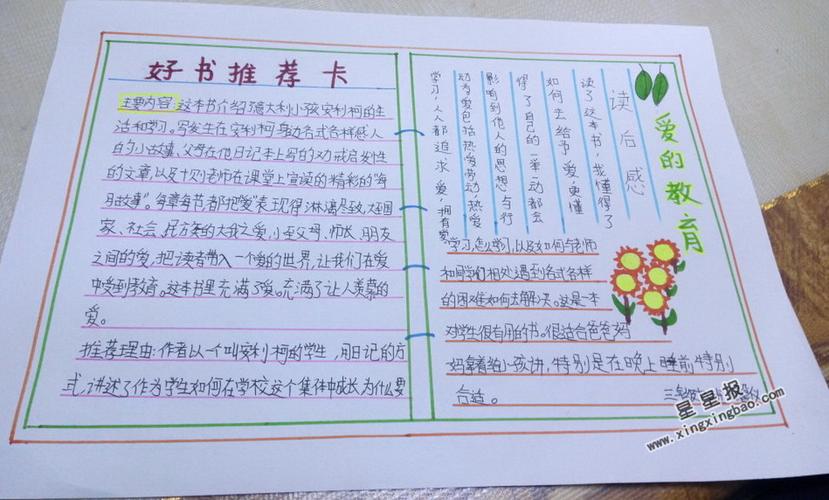 好书推荐卡
主要内容:这本书介绍意大利小孩安利柯的生
活和学习。写发生在安利柯身边各式各样感人
的小故事、父母在他日记本上写的劝戒启发性
的文章,以及十则老师在课堂上宣读的精彩的"每
月故事"。每章每节都把爱表现得淋漓尽致,大至国
家、社会、民族的大我之爱,小至父母、师长、朋友
之间的爱,把读者带入一个爱的世界,让我们在爱
中受到教育。这本书里充满了爱。充满了让人羡慕的
爱。
推荐理由:作者以一个叫安利柯的学生,用日记的方
式,讲述了作为学生如何在学校这个集体中成长,为什么要
学习,怎么学习,以及如何与老师
和同学们相处遇到各式各样
的困难如何去解决。这是一本
对学生很有用的书。很适合爸爸妈
妈拿着给小孩讲,特别是在晚上睡前,特别
合适。
爱的教育
读后感
读了这本书,我懂得了
如何去给予爱,更懂
得了自己的一举一动都会
影响到他人的思想与行
动,爱包括热爱劳动,热爱
学习,人人都追求爱,拥有爱
星星报
www.xingxingbao.com